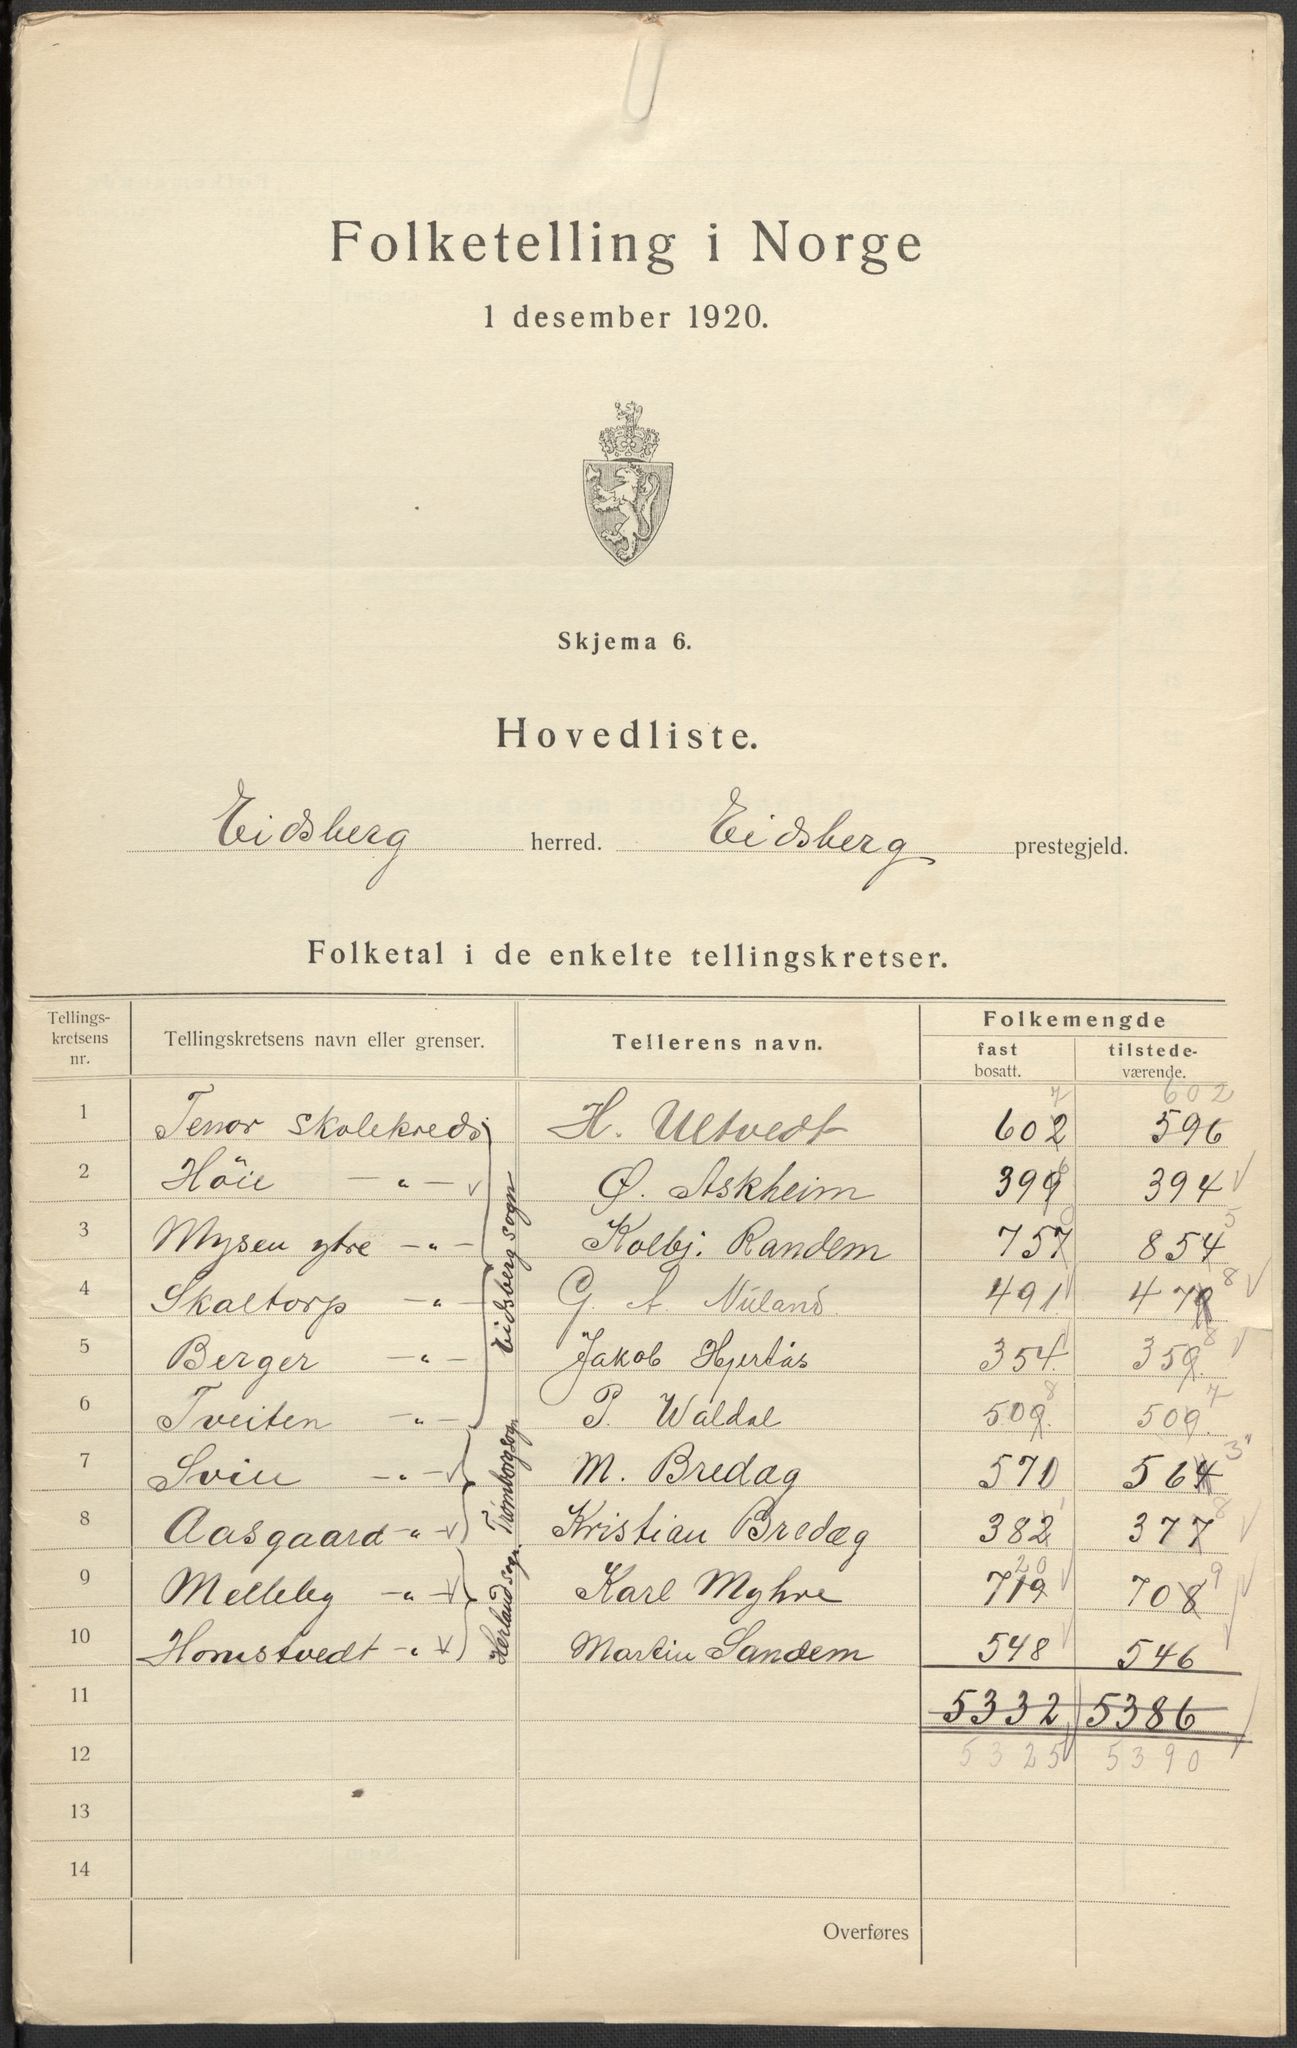 Folketelling i Norge
1 desember 1920.
Skjema 6.
Hovedliste.
Eidsberg herred. Eidsberg prestegjeld.
Folketal i de enkelte tellingskretser.
Tellings-kretsens nr. Tellingskretsens navn eller grenser. Tellerens navn. Folkemengde
fast bosatt. tilstede-værende.
7 602
1 Tenor Skolekreds H. Ultvedt 602 596
2 Höie —"— Ø. Askheim 399 394
3 Mysen ytre —"— Kolbj. Randem 757 854 5
4 Skaltorp —"— G. A. Nuland 491 479 8
5 Berger —"— Jakob Hjertås 354 359 8
6 Tveiten —"— P. Waldal 509 8 509 7
7 Sviu —"— M. Bredag 570 564 3
8 Aasgaard —"— Kristian Bredæg 382 1 377 8
9 Melleby —"— Karl Myhre 719 20 708 9
10 Homstvedt —"— Martin Sandem 548 546
Eidsberg sogn
Trømborg sogn
Herland sogn
11 5332 5386
12 5325 5390
13
14
Overføres